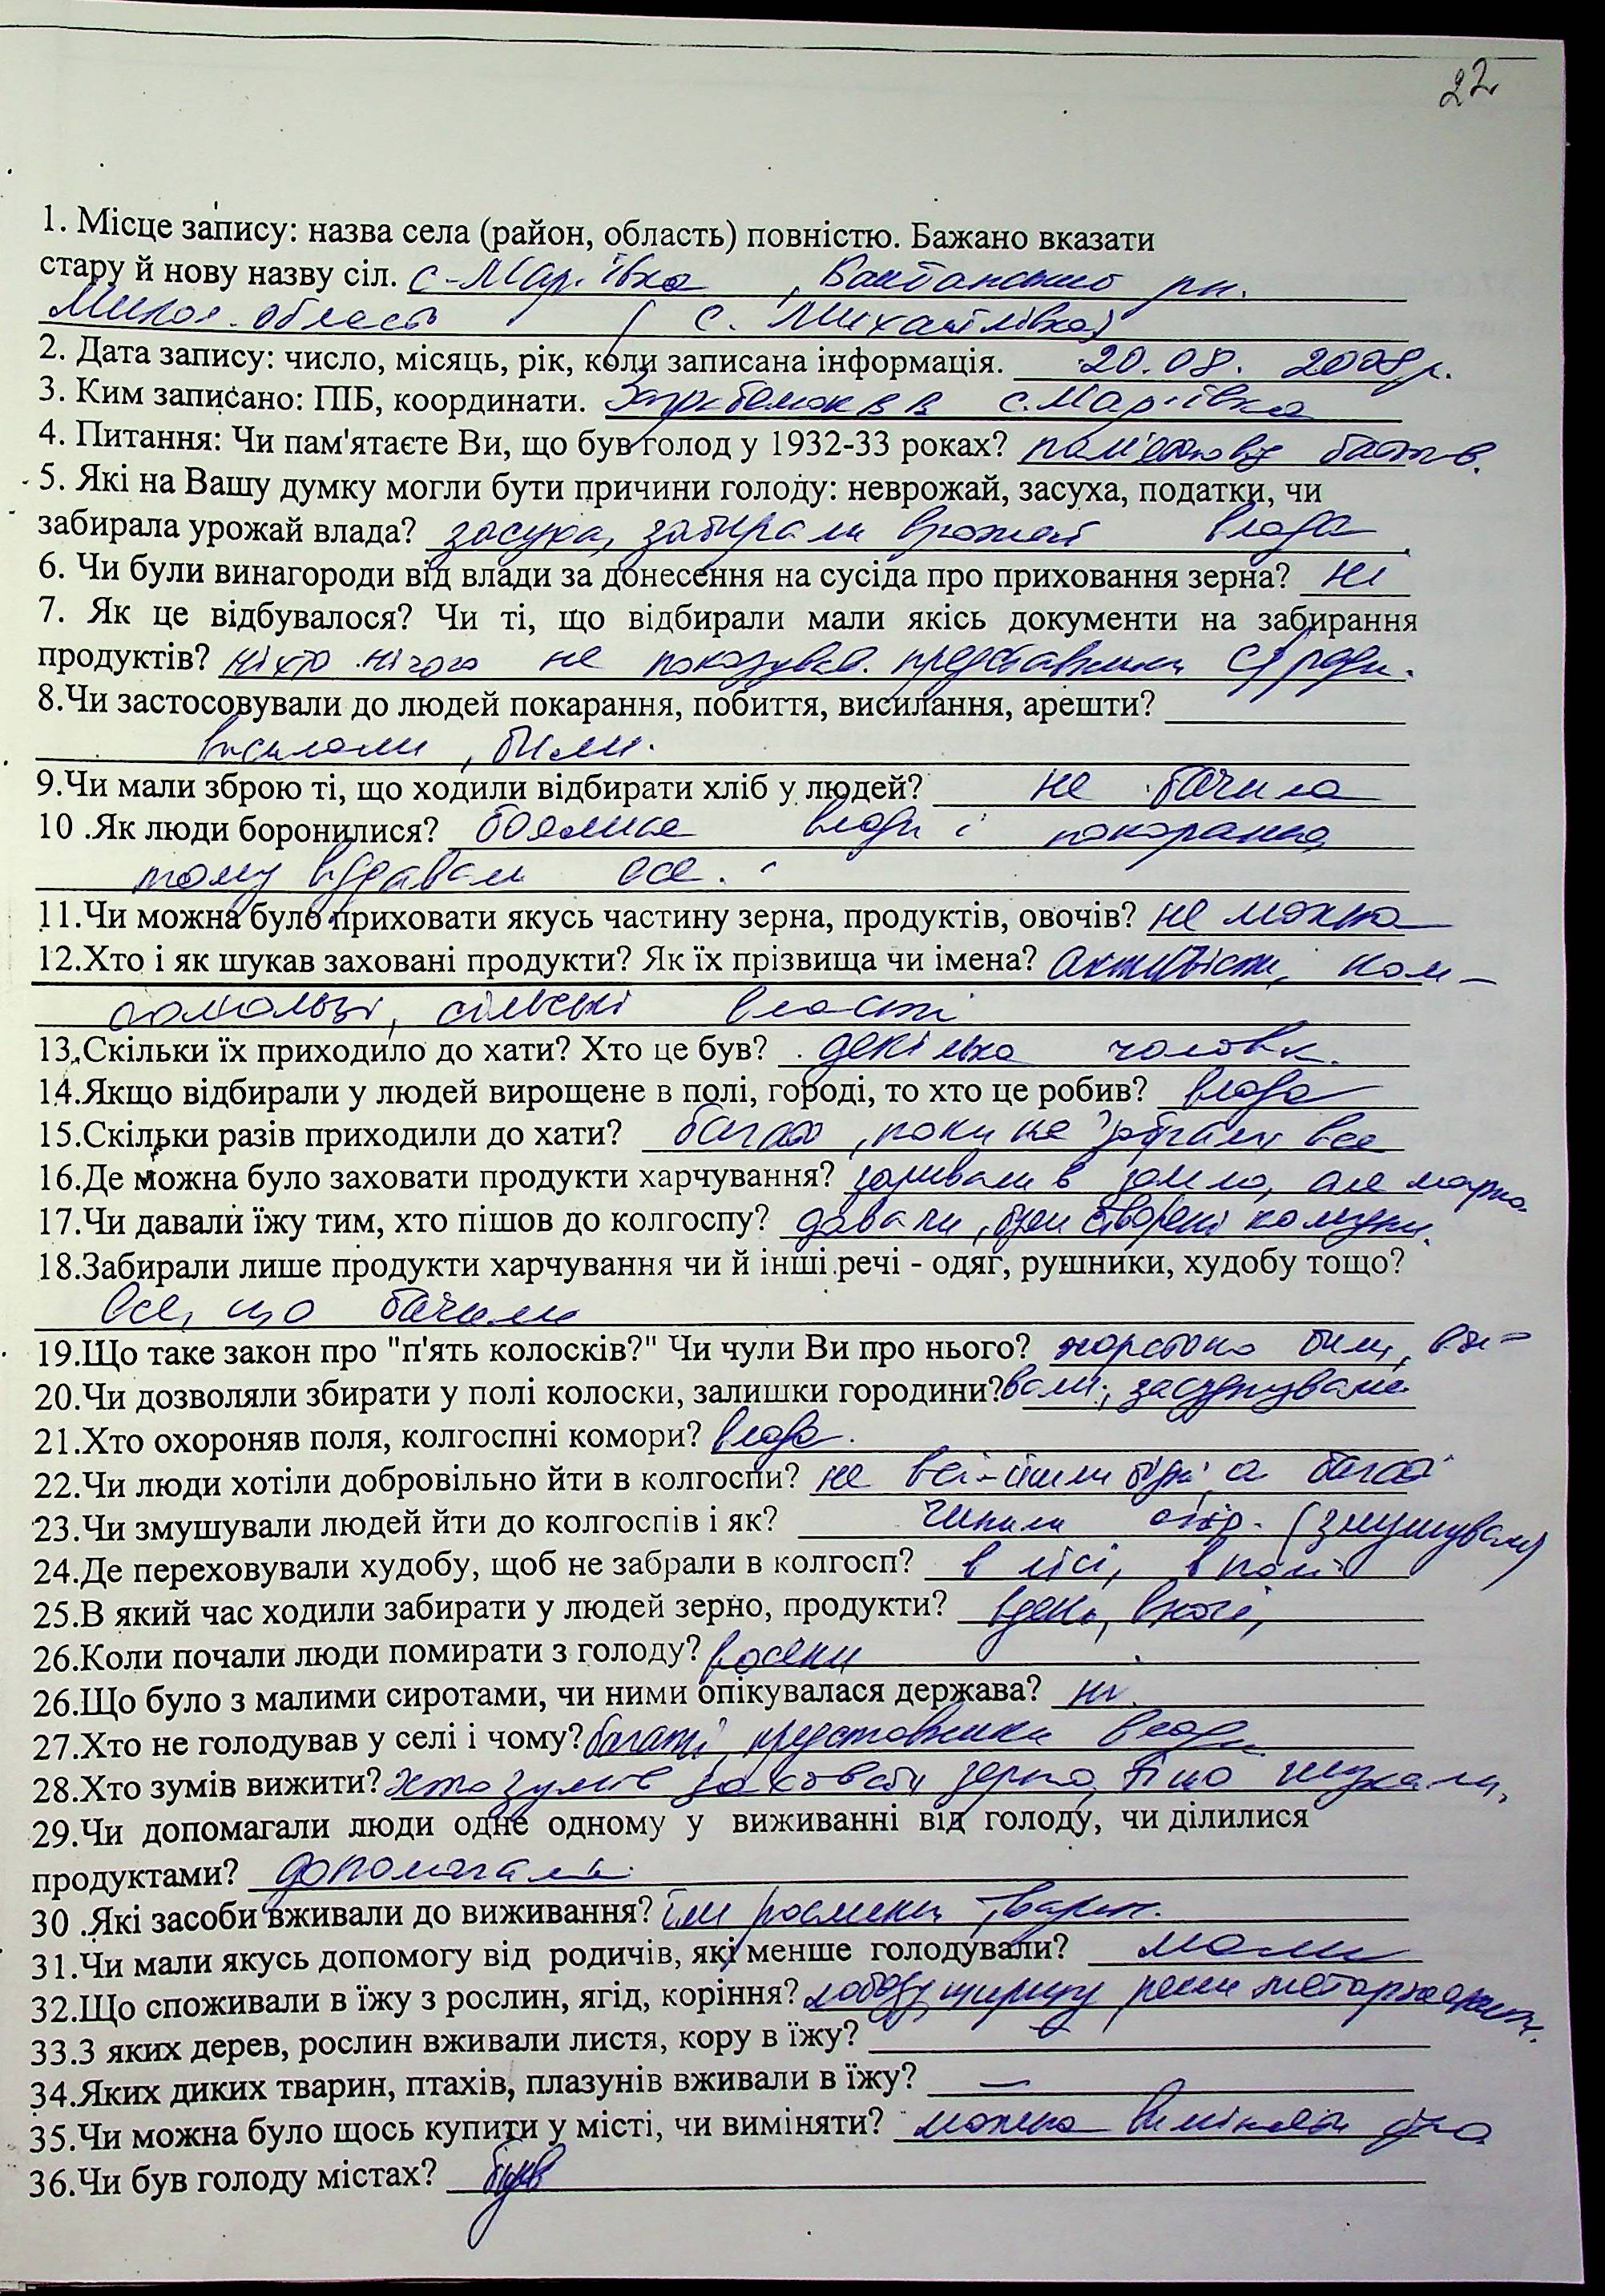 22
1. Місце запису: назва села (район, область) повністю. Бажано вказати
стару й нову назву сіл. с-Мар'ївка , Баштанського рн.
Микол. область ( с. Михайлівка)
2. Дата запису: число, місяць, рік, коли записана інформація. 20.08. 2008р.
3. Ким записано: ПІБ, координати. В В с.Мар'ївка
4. Питання: Чи пам'ятаєте Ви, що був голод у 1932-33 роках? від батьків.
5. Які на Вашу думку могли бути причини голоду: неврожай, засуха, податки, чи
забирала урожай влада? засуха, забирали врожай влада
6. Чи були винагороди від влади за донесення на сусіда про приховання зерна? Ні
7. Як це відбувалося? Чи ті, що відбирали мали якісь документи на забирання
продуктів? ніхто нічого не показував. представники с/ради.
8.Чи застосовували до людей покарання, побиття, висилання, арешти?
висилали, били.
9.Чи мали зброю ті, що ходили відбирати хліб у людей? не бачила
10 .Як люди боронилися? боялися влади і покарання,
тому віддавали все.
11.Чи можна було приховати якусь частину зерна, продуктів, овочів? не можна
12.Хто і як шукав заховані продукти? Як їх прізвища чи імена? Активісти, ком-
сомольці, сільські власті
13.Скільки їх приходило до хати? Хто це був? декілька чоловік.
14.Якщо відбирали у людей вирощене в полі, городі, то хто це робив? влада
15.Скільки разів приходили до хати? багато, поки не забрали все
16.Де можна було заховати продукти харчування? заривали в землю, але марно.
17.Чи давали їжу тим, хто пішов до колгоспу? давали, були створені комуни.
18.Забирали лише продукти харчування чи й інші речі - одяг, рушники, худобу тощо?
все, що бачили
19.Що таке закон про "п'ять колосків?" Чи чули Ви про нього? жорстоко били,
20.Чи дозволяли збирати у полі колоски, залишки городини? вали, засуджували
21.Хто охороняв поля, колгоспні комори? влада.
22.Чи люди хотіли добровільно йти в колгоспи? не всі-йшли бідні, а багаті
23.Чи змушували людей йти до колгоспів і як? чинили опір. (змушували)
24.Де переховували худобу, щоб не забрали в колгосп? в лісі, в полі
25.В який час ходили забирати у людей зерно, продукти? вдень, вночі,
26.Коли почали люди помирати з голоду? восени
26.Що було з малими сиротами, чи ними опікувалася держава? ні.
27.Хто не голодував у селі і чому? багаті, представники влади
28.Хто зумів вижити? хто зумів заховати зерно, ті що шукали.
29.Чи допомагали люди одне одному у виживанні від голоду, чи ділилися
продуктами? допомагали
30 .Які засоби вживали до виживання? їли рослини, тварин.
31.Чи мали якусь допомогу від родичів, які менше голодували? мали
32.Що споживали в їжу з рослин, ягід, коріння? лободу, щирицу
33.З яких дерев, рослин вживали листя, кору в їжу?
34.Яких диких тварин, птахів, плазунів вживали в їжу? —
35.Чи можна було щось купити у місті, чи виміняти? можна виміняти
36.Чи був голоду містах? був